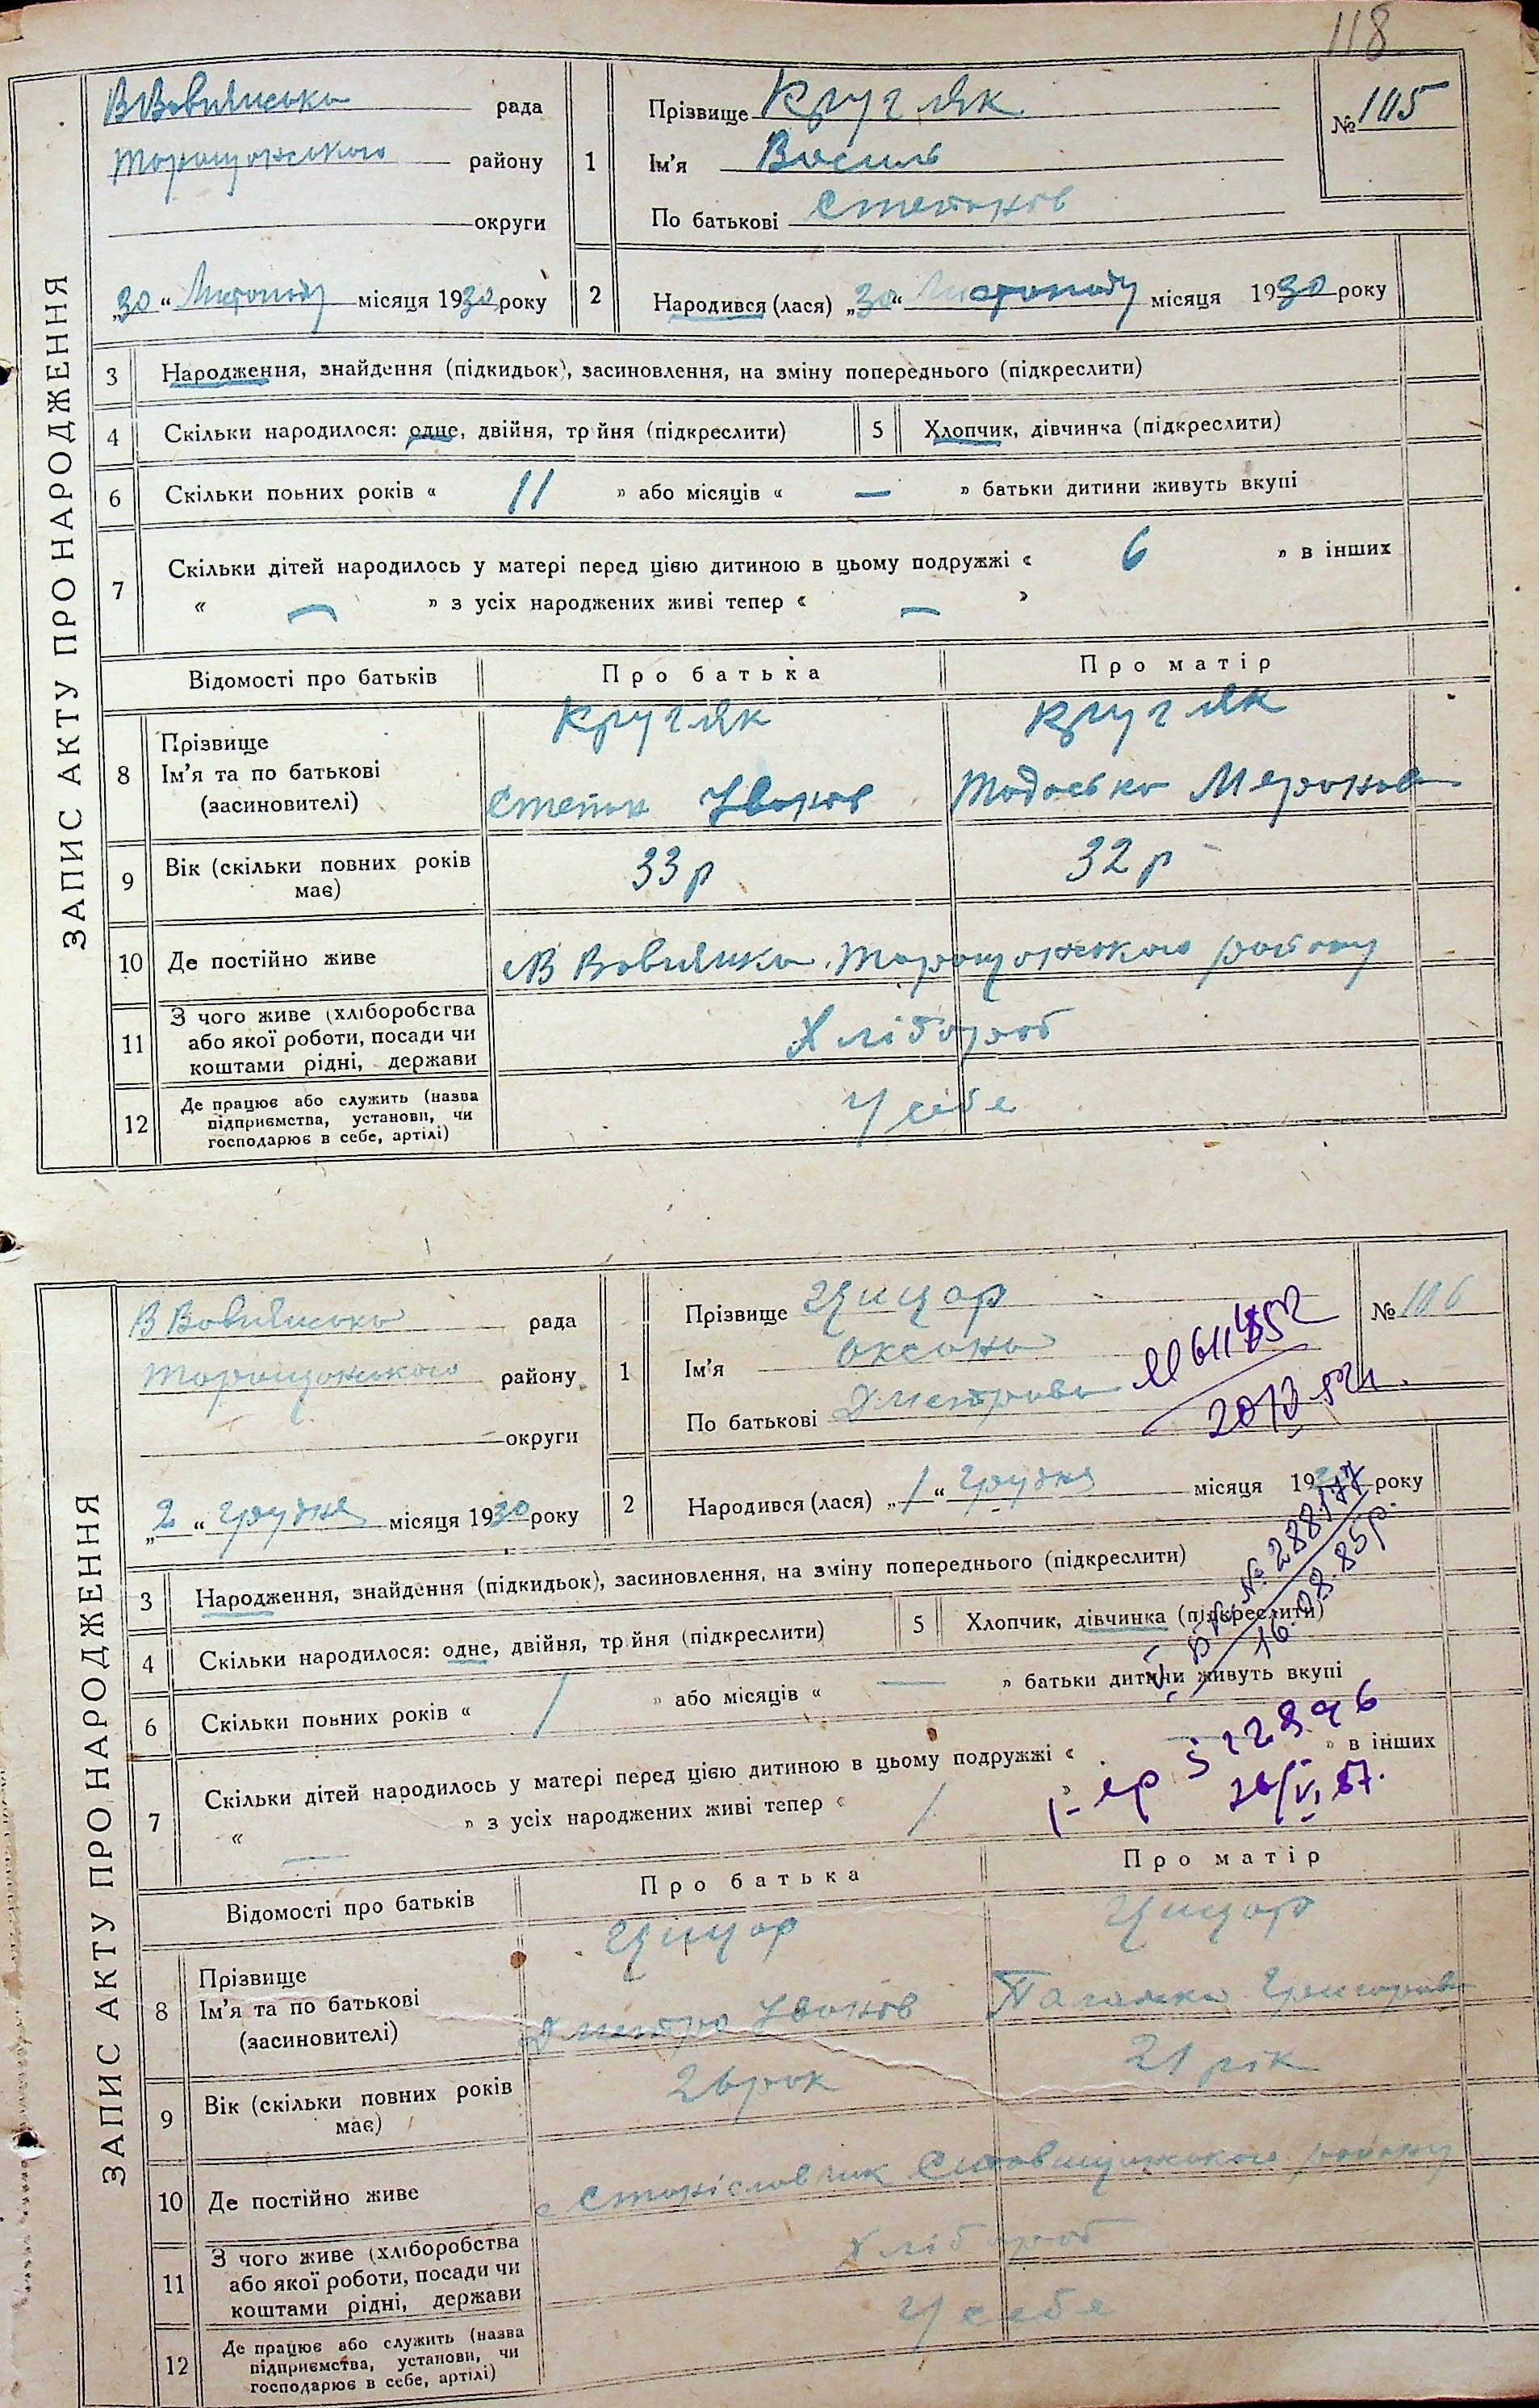 118
ЗАПИС АКТУ ПРО НАРОДЖЕННЯ
В Вовнянська рада
Таращанського району
округи
„30“ Листопаду місяця 1930 року
1
Прізвище Кругляк
Ім'я Василь
По батькові Степанов
№ 105
2
Народився (лася) „30“ Листопаду місяця 1930 року
3 Народження, знайдення (підкидьок), засиновлення, на зміну попереднього (підкреслити)
4 Скільки народилося: одне, двійня, трійня (підкреслити) 5 Хлопчик, дівчинка (підкреслити)
6 Скільки повних років « 11 » або місяців « — » батьки дитини живуть вкупі
7 Скільки дітей народилось у матері перед цією дитиною в цьому подружжі « 6 » в інших
« — » з усіх народжених живі тепер « — »
Відомості про батьків Про батька Про матір
8 Прізвище Ім'я та по батькові (засиновителі)
Кругляк Кругляк
Степан Іванов Тодоська Миронов
9 Вік (скільки повних років має) 33 р 32 р
10 Де постійно живе В Вовнянка Таращанського району
11 З чого живе (хліборобства або якої роботи, посади чи коштами рідні, держави Хлібороб
12 Де працює або служить (назва підприємства, установи, чи господарює в себе, артілі) У себе
ЗАПИС АКТУ ПРО НАРОДЖЕННЯ
В Вовнянська рада
Таращанського району
округи
„2“ Грудня місяця 1930 року
1
Прізвище Цицор
Ім'я Оксана
По батькові Дметрова
№ 106
2
Народився (лася) „1“ Грудня місяця 19 року
3 Народження, знайдення (підкидьок), засиновлення, на зміну попереднього (підкреслити)
4 Скільки народилося: одне, двійня, трійня (підкреслити) 5 Хлопчик, дівчинка (підкреслити)
16.08.85р.
6 Скільки повних років « 1 » або місяців « — » батьки дитини живуть вкупі
7 Скільки дітей народилось у матері перед цією дитиною в цьому подружжі « » в інших
« — » з усіх народжених живі тепер « 1 »
Відомості про батьків Про батька Про матір
8 Прізвище Ім'я та по батькові (засиновителі)
Цицор Цицор
Дметро Іванов Палажка Григорова
9 Вік (скільки повних років має) 26 рок 21 рік
10 Де постійно живе с Станіславчик Ставищанського району
11 З чого живе (хліборобства або якої роботи, посади чи коштами рідні, держави Хлібороб
12 Де працює або служить (назва підприємства, установи, чи господарює в себе, артілі) У себе